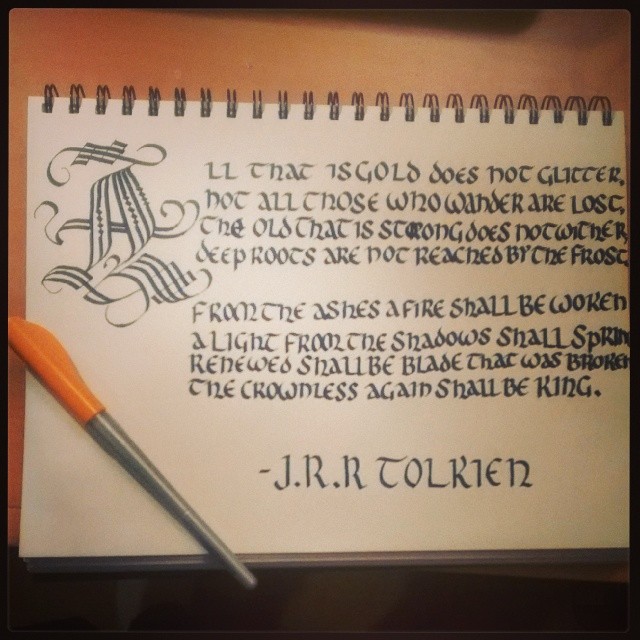 All that is gold does not glitter,
not all those who wander are lost,
the old that is strong does not wither
deep roots are not reached by the frost.
From the ashes a fire shall be woken
a light from the shadows shall sprin
renewed shall be blade that was broken
the crownless again shall be king.
-J.R.R Tolkien